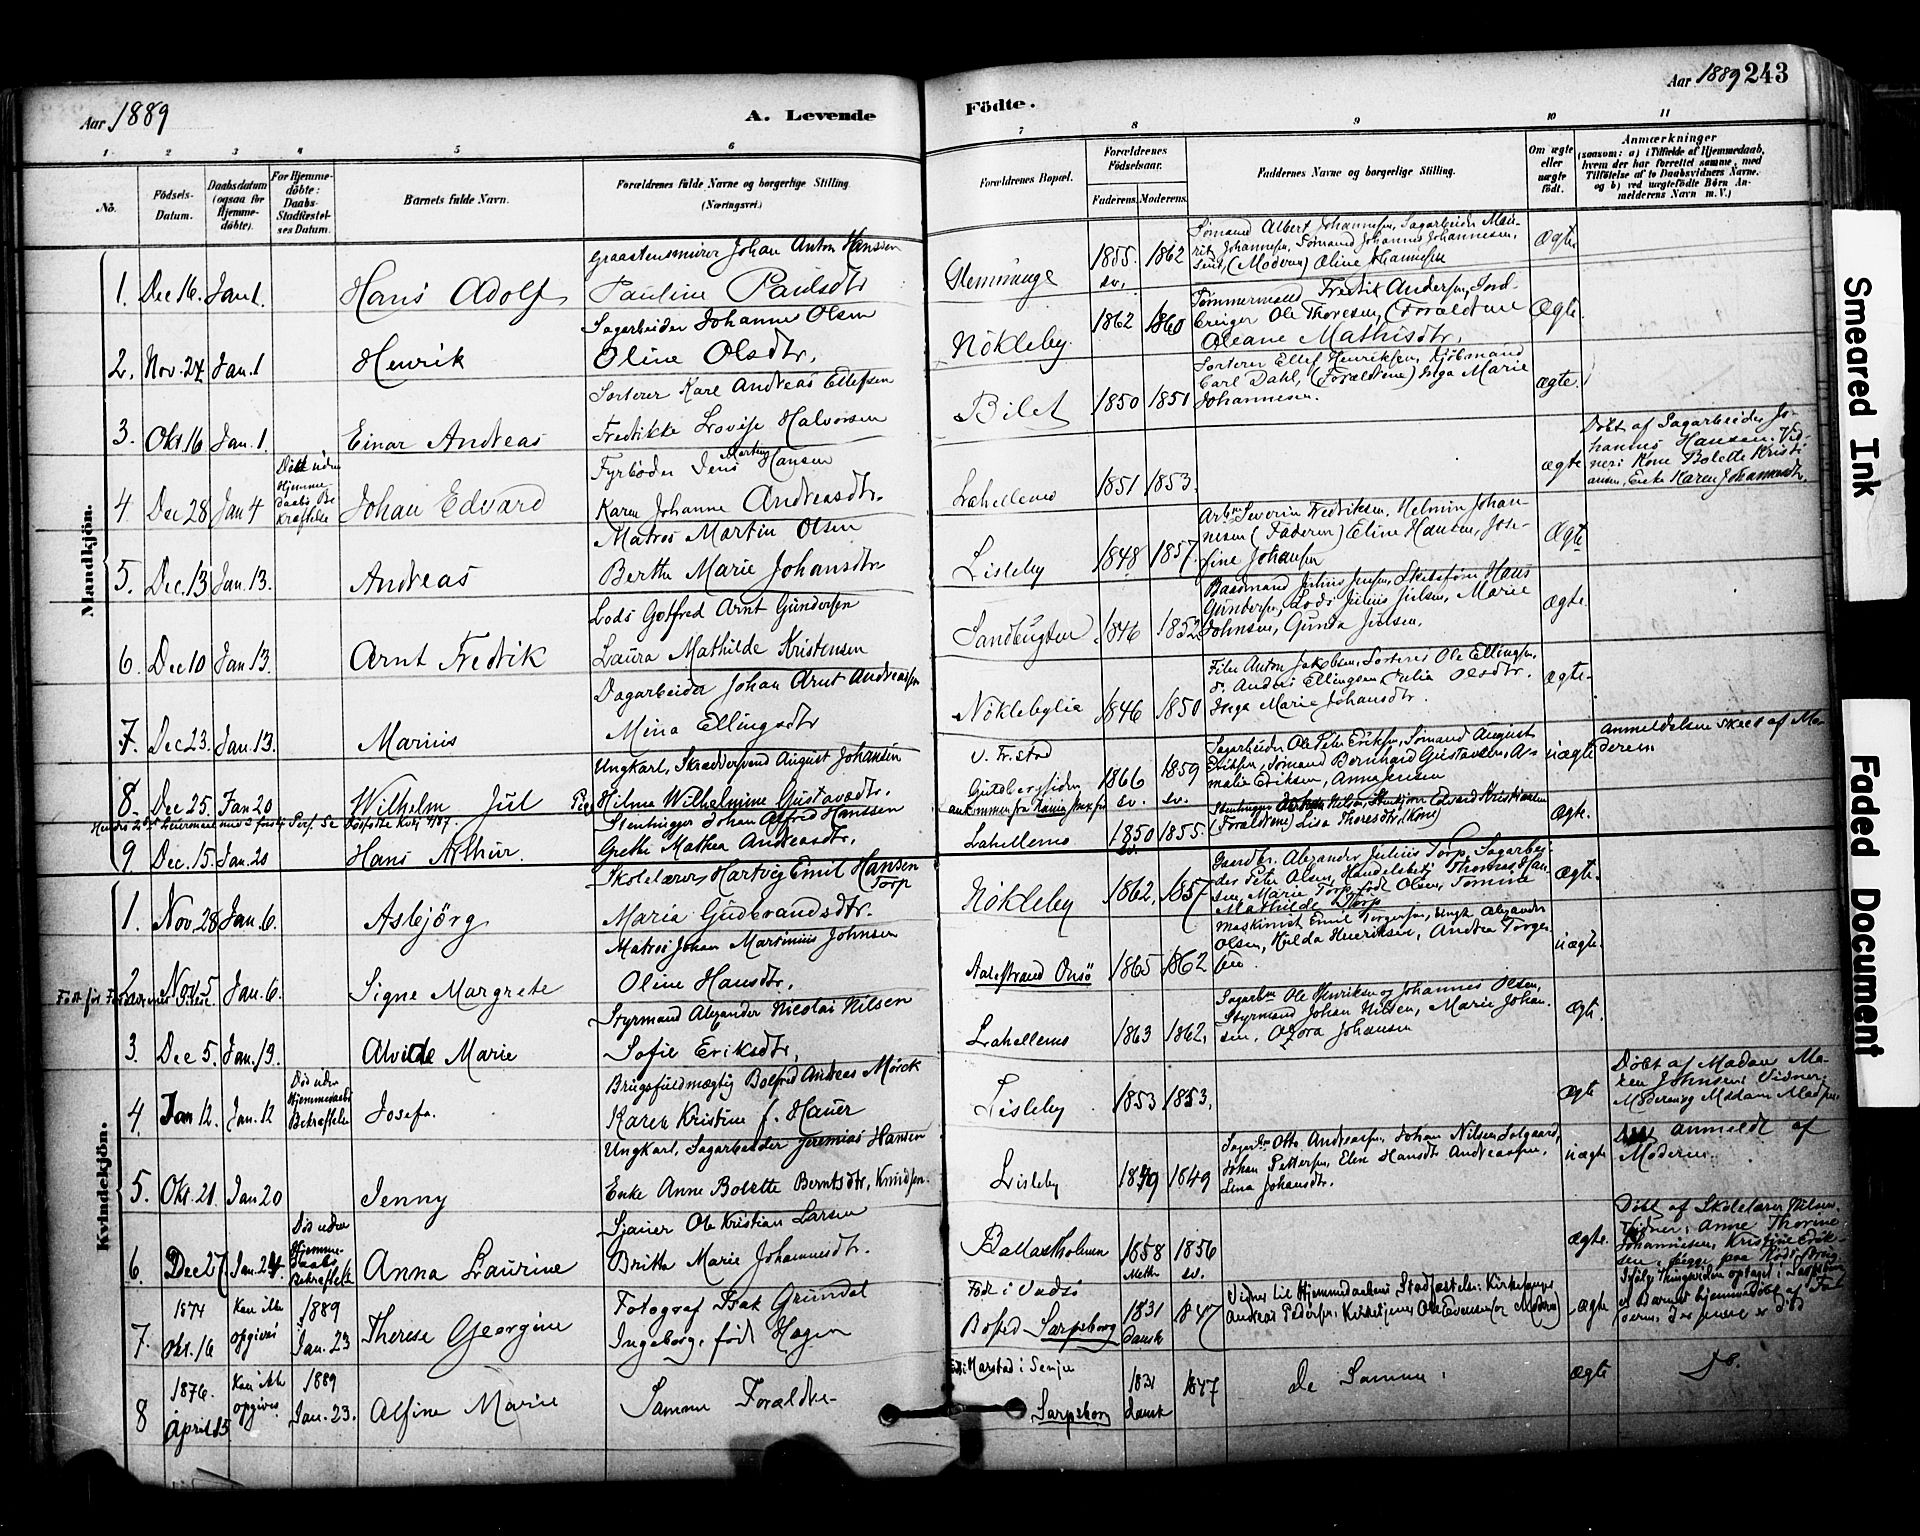 Aar 1889
A. Levende
Födte.
Aar 1889 243
1 2 3 4 5 6 7 8 9 10 11
No.
Födsels-
Datum.
Daabsdatum
(ogsaa for
Hjemme-
döbte).
For Hjemme-
döbte:
Daabs-
Stadfæstel-
ses Datum.
Barnets fulde Navn.
Forældrenes fulde Navne og borgerlige Stilling
(Næringsvei.)
Forældrenes Bopæl.
Forældrenes
Födselsaar.
Faderens. Moderens.
Faddernes Navne og borgerlige Stilling.
Om ægte
eller
uægte
födt.
Anmærkninger
(saasom: a) i Tilfælde af Hjemmedaab,
hvem der har forrettet samme, med
Tilföielse af to Daabsvidners Navne.
og b) ved uægtefödte Börn An-
melderens Navn m.V.)
Mandkjön.
1. Dec 16. Jan 1. Hans Adolf
Graastensmurer Johan Anton Hanssen
Pauline Paulsdtr
Glemminge 1855 sv. 1862
Sömand Albert Johannesen, Sagarbeider
Johannesen, Sömand Johannes Johannesen,
(Moderen) Oline Johannesen
Ægte
2. Nov. 24 Jan. 1 Henrik
Sagarbeider Johannes Olsen
Oline Olsdtr.
Nökleby. 1862 1860
Tömmermand Fredrik Andersen,
Ole Thoresen, (Forældrene
Oleane Mathisdtr.
Ægte.
3. Okt 16 Jan. 1 Einar Andreas
Sorterer Karl Andreas Ellefsen
Fredrikke Lovise Halvorsen
Bilet 1850 1851
Sorterer Ellef Henriksen, Kjöbmand
Carl Dahl, (Forældrene) Inga Marie
Johannesen.
ægte.
4. Dec 28 Jan 4 Död uden
Hjemme-
daabs Be
kræftelse
Johan Edvard
Fyrböder Jens Martin Hansen
Karen Johanne Andreasdtr.
Lahellemo 1851 1853.
ægte
Döbt af Sagarbeider Jo-
hannes Hansen. Vid-
ner: Kone Bolette Kristi
ansen, Enke Karen Johannesdtr.
5. Dec. 13 Jan. 13. Andreas
Matros Martin Olsen
Berthe Marie Johansdtr
Lisleby 1848 1857.
Arbm Severin Fredriksen, Helmin Johan-
nesen (Faderen) Eline Hansen, Jose-
fine Johansen
Ægte
6. Dec 10 Jan 13. Arnt Fredrik
Lods Gotfred Arnt Gundersen
Laura Mathilde Kristensen
Sandbugten 1846 1852
Baadmand Julius Jensen, Skibsförer Hans
Gundersen, Lods Julius Julsen, Marie
Johnsen, Gunda Jensen.
ægte.
7. Dec 23. Jan. 13. Marius
Dagarbeider Johan Arnt Andreassen
Mina Ellingsdtr
Nöklebylia 1846 1850
Filer Anton Jakobsen, Sorterer Ole Ellingsen,
Andrei Ellingsen, Julia Olsdtr.
Inga Marie Johansdtr.
ægte.
8. Dec 25. Jan 20 Wilhelm Jul
Ungkarl, Skrædersvend August Johansen
Pige Hilma Wilhelmine Gustavsdtr.
v. Fr.stad
Gudbergsiden 1866 sv. 1859 sv.
Sagarbeider Ole Peter Eriksen, Sömand August
Eriksen, Sömand Bernhard Gustavsen, A-
malie Eriksen, Anna Jensen
uægte
Anmeldelsen skeet af Mo-
deren.
9. Dec. 15. Jan. 20 Hans Arthur.
Stenhugger Johan Alfred Hanssen
Grethe Mathea Andreasdtr.
Lahellemo 1850 sv. 1855.
Stenhugger Johan Nilsen, Edvard Kristiansen
(Forældrene) Lisa Thoresdtr (Kone)
Ægte.
Kvindekjön.
1. Nov. 28 Jan. 6. Asbjörg
Skolelærer Hartvig Emil Hansen
Torp
Maria Gudbrandsdtr.
Nökleby 1862, 1857
Gaardbr. Alexander Julius Torp, Sagarbei-
der Peter Olsen, Handelsbetj Thomas Han-
sen, Marie Torp, född Olsen, Tomine
Mathilde Torp
ægte.
2. Nov. 5 Jan. 6. Signe Margrete
Födt för Forældrenes
Matros Johan Martinius Johnsen
Oline Hansdtr.
Aalestrand Onsö 1865 1862
Maskinist Emil Torgersen, Alexander
Olsen, Hulda Henriksen, Andrea Torger
sen
uægte.
3. Dec 5. Jan. 13. Alvilde Marie
Styrmand Alexander Nicolai Nilsen
Sofie Eriksdtr.
Lahellemo 1863 1862.
Sagarbm Ole Henriksen og Johannes Olsen,
Styrmand Johan Nilsen, Marie Johan-
sen, Ozora Johansen
ægte.
4. Jan 12. Jan. 12 Död uden
Hjemmedaabs
Bekræftelse
Josefa.
Brugsfuldmægtig Bolfred Andreas Mörck
Karen Kristine f. Hauer
Lisleby 1853 1853.
ægte
Döbt af Madam Ma-
ren Johnsen: Vidner:
Moderen og Madam Madsen
5. Okt. 21. Jan 20 Jenny
Ungkarl, Sagarbeider Jeremias Hansen
Enke Anne Bolette Berntsdtr. Knudsen.
Lisleby 1849 1849
Sagarbm Otto Andreassen, Johan Nilsen Solgaard,
Johan Pettersen, Elen Hansdtr Andreassen,
Lina Johansdtr.
uægte
anmeldt af
Moderen.
6. Dec 27 Jan. 24. Död uden
Hjemme-
daabs
Bekræftelse
Anna Laurine
Sjauer Ole Kristian Larsen
Britta Marie Johannesdtr.
Ballastholmen 1858 1856 sv.
ægte.
Döbt af Skolelærer Nilsen.
Vidner: Anne Thorine
Johannesen, Kristine Erik-
sen, begge paa
7. 1874 Okt. 16 Kan ikke opgives 1889 Jan. 23 Therese Georgine
Fotograf Isak Grundal
Ingeborg, född Hagen
Född i Vadsö
Bosted Sarpsborg 1831 dansk 1847
Vidner til Hjemmedaabens Stadfæstelse: Kirkesanger
Andreas Pedersen, Kirketjener Ole Evensen (og Moderen)
Ægte
8 1876. April 15 Kan ikke opgives. 1889 Jan. 23. Alfine Marie
Samme Forældre
Sarpsborg 1831 dansk 1847
De Samme.
Ægte
Smeared Ink
Faded Document